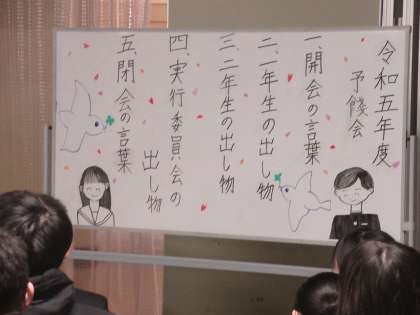 令和五年度
予餞会
一、開会の言葉
二、一年生の出し物
三、二年生の出し物
四、実行委員会の
出し物
五、閉会の言葉